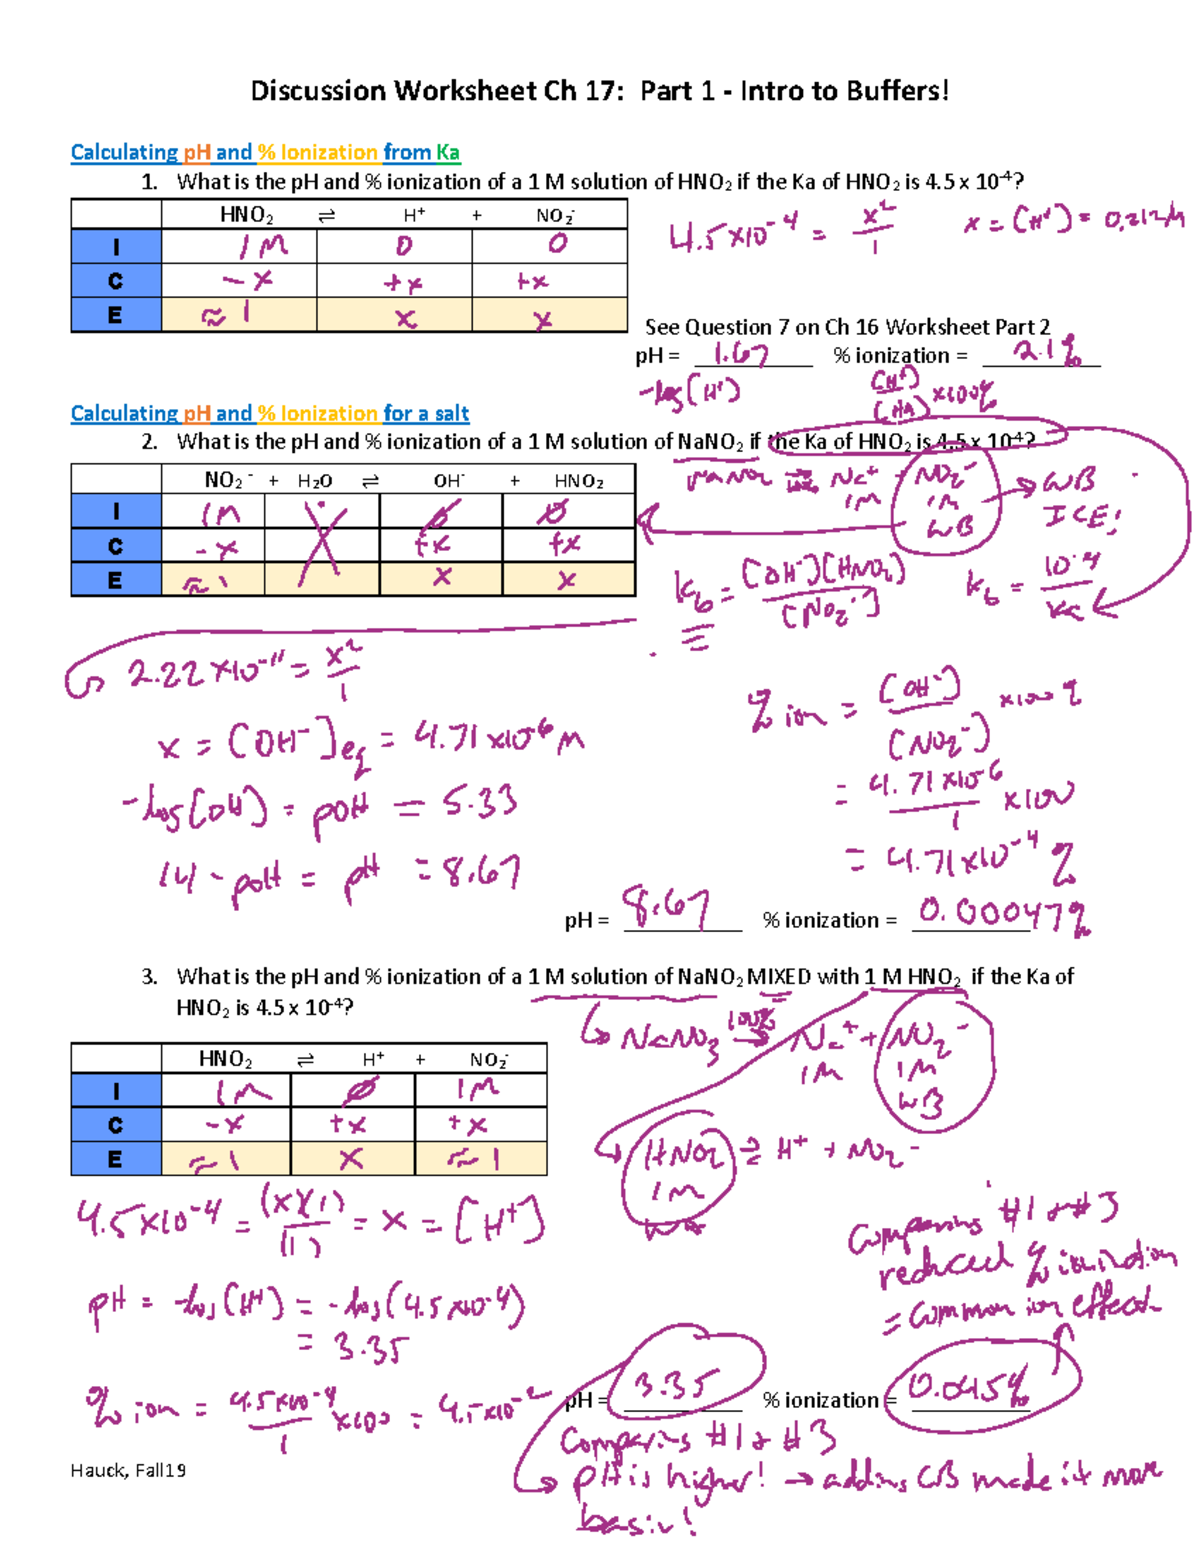 Discussion Worksheet Ch 17: Part 1 - Intro to Buffers!
Calculating pH and % Ionization from Ka
1. What is the pH and % ionization of a 1 M solution of HNO₂ if the Ka of HNO₂ is 4.5 x 10⁻⁴?
HNO₂ ⇌ H⁺ + NO₂⁻
I 1M 0 0
C -x +x +x
E ≈1 x x
4.5x10⁻⁴ = x²/1 x = [H⁺] = 0.0212M
See Question 7 on Ch 16 Worksheet Part 2
pH = 1.67 % ionization = 2.1%
-log[H⁺] [H⁺]/[HA] x100%
Calculating pH and % Ionization for a salt
2. What is the pH and % ionization of a 1 M solution of NaNO₂ if the Ka of HNO₂ is 4.5 x 10⁻⁴?
NO₂⁻ + H₂O ⇌ OH⁻ + HNO₂
I 1M X 0 0
C -x +x +x
E ≈1 x x
NaNO₂ → Na⁺ + NO₂⁻ → WB
1M 1M ICE!
WB
Kb = [OH⁻][HNO₂]/[NO₂⁻] Kb = 10⁻¹⁴/Ka
2.22x10⁻¹¹ = x²/1
x = [OH⁻]eq = 4.71x10⁻⁶ M
-log[OH] = pOH = 5.33
14 - pOH = pH = 8.67
% ion = [OH⁻]/[NO₂⁻] x100%
= 4.71x10⁻⁶/1 x100
= 4.71x10⁻⁴ %
pH = 8.67 % ionization = 0.00047%
3. What is the pH and % ionization of a 1 M solution of NaNO₂ MIXED with 1 M HNO₂ if the Ka of
HNO₂ is 4.5 x 10⁻⁴?
NaNO₃ 100% → Na⁺ + NO₂⁻
1M 1M
WB
HNO₂ ⇌ H⁺ + NO₂⁻
I 1M 0 1M
C -x +x +x
E ≈1 x ≈1
HNO₂ ⇌ H⁺ + NO₂⁻
1M
WA
4.5x10⁻⁴ = (x)(1)/(1) = x = [H⁺]
pH = -log[H⁺] = -log(4.5x10⁻⁴)
= 3.35
% ion = 4.5x10⁻⁴/1 x100 = 4.5x10⁻²
Comparing #1 & #3
reduced % ionization
= common ion effect
pH = 3.35 % ionization = 0.045%
Comparing #1 & #3
pH is higher! → adding CB made it more
basic!
Hauck, Fall19